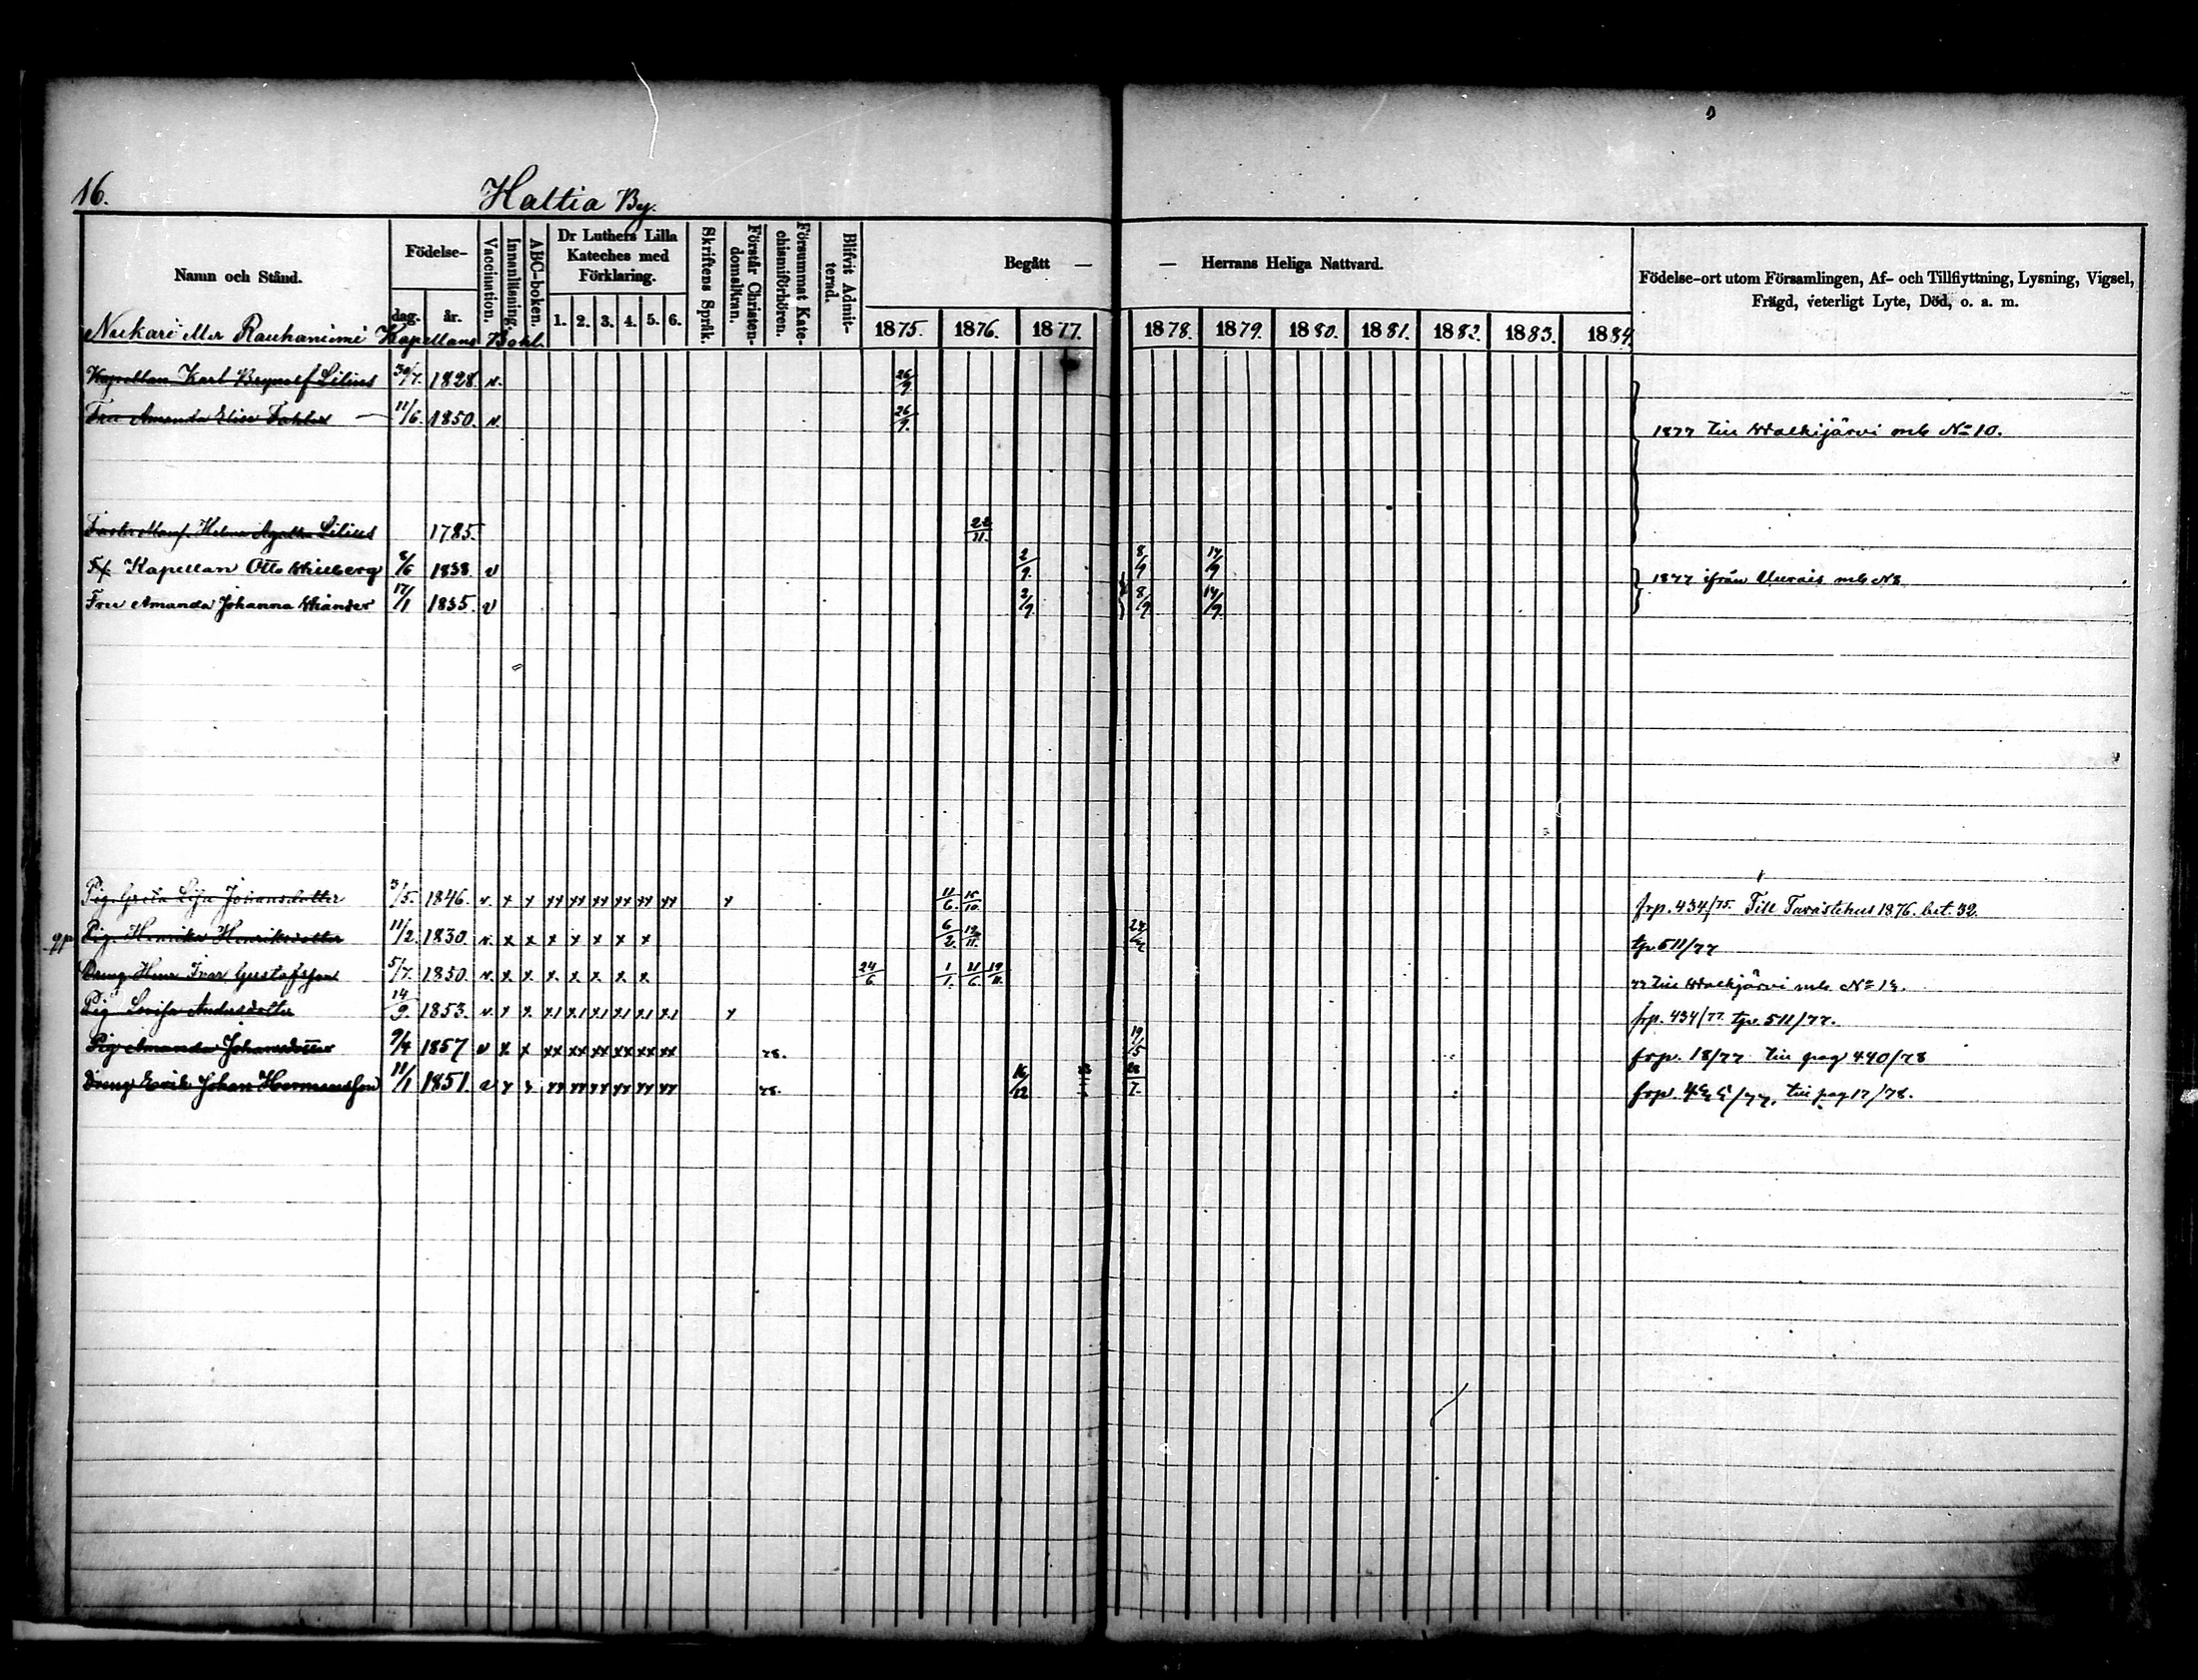 16.
Hattia By.
Namn och Stånd.
Födelse-
dag.
år.
Vaccination.
Innanläsning.
ABC-boken.
Dr Luthers Lilla Kateches med Förklaring.
1. 2. 3. 4. 5. 6.
Skriftens Språk.
Förstår Christendomslläran.
Försummat Katechismiförhören.
Blifvit Admitterad.
Begått —
— Herrans Heliga Nattvard.
1875. 1876. 1877. 1878. 1879. 1880. 1881. 1882. 1883. 1884.
Födelse-ort utom Församlingen, Af- och Tillflyttning, Lysning, Vigsel,
Frägd, veterligt Lyte, Död, o. a. m.
Nukari eller Rauhaniemi Kapellans Bohl.
Kapellan Karl Brynolf Lilius 30/7. 1828. v. 26/9.
Fru Amanda Elise Fahler 11/6. 1850. v. 26/9.
1877 till Walkijärvi mb No 10.
Lilius 1785. 22/11.
Kapellan Otto Willberg 8/6 1838. v 2/9. 8/9 14/9
Fru Amanda Johanna Wiander 17/1 1835. v 2/9. 8/9 14/9
1877 ifrån Aurais mb N8
Pig. Greta Lisa Johansdotter 3/5. 1846. v. x x xx xx xx xx xx xx x 11/6. 15/10. frp. 434/75. Till Tavastehus 1876. bet. 32.
Pig. Henrika Henriksdotter 11/2. 1830. v. x x x x x x x 6/2. 12/11. tp. 511/77
Dreng Henr Ivar Gustafsson 5/7. 1850. v. x x x x x x x 24/6 1/1. 11/6. 19/11. 77 till Walkjärvi mb. No 12.
Pig Lovisa Andersdotter 14/9. 1853. v x x x1 x1 x1 x1 x1 x1 x frp. 434/77 tp. 511/77.
Pig Amanda Johansdotter 9/4 1857 v x x xx xx xx xx xx xx 78. 19/5 frp. 18/77 till pag 440/78
Dreng Erik Johan Hermansson 11/1 1851. v x x xx xx xx xx xx xx 78. 16/12 till pag 17/78.